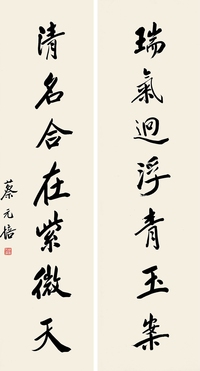 瑞氣迥浮青玉案
清名合在紫微天
蔡元培